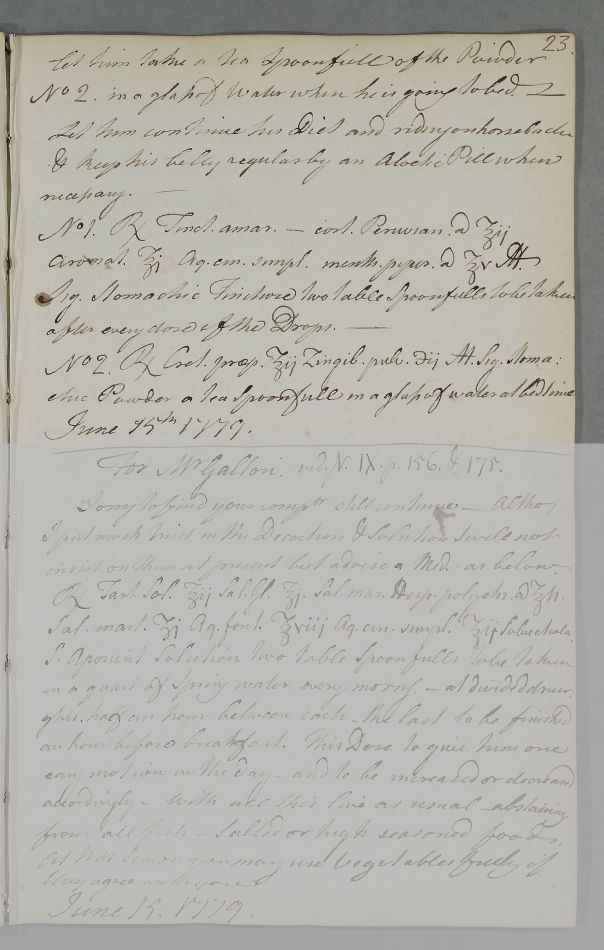 23.
let him take a tea spoonfull of the Powder
No 2. in a glass of Water when he is going to bed. —
Let him continue his Diet and riding on horseback
& keep his belly regular by an Aloetic Pill when
necessary. —
No 1. ℞ Tinct. amar. — cort. Peruvian. a ʒij
aromat. ʒj Aq. cin. simpl. menth. piper. a ʒv M.
Sig. Stomachic Tincture two table spoonfulls to be taken
after every dose of the Drops. —
No 2. ℞ Cret. præp. ʒij Zingib. pulv. ℈ij M. Sig. Stoma:
chic Powder a tea spoonfull in a glass of water at bedtime
June 15th 1779.
For Mr Galton. vid. N. IX. p. 156. & 175.
Sorry to find your compts still continue — Altho
I put much trust in the Decoction & Solution I will not
insist on them at present but advise a Med. as below.
℞ Tart. Sol. ʒij Sal. Gl. ʒj. Sal. mar. polychr. a ʒſs.
Sal. mart. ʒj Aq. font. ʒviij Aq. cin. simpl. ʒij
S. Aperient Solution two table spoonfulls to be taken
in a quart of Spring water every morng. — at divided drau:
ghts. half an hour between each — the last to be finished
an hour before breakfast. This Dose to give him one
easy motion in the day — and to be increased or decreased
accordingly — With all this live as usual abstaining
from all — salted or high seasoned foods.
At this Season you may use Vegetables freely if
they agree with you
June 15. 1779.